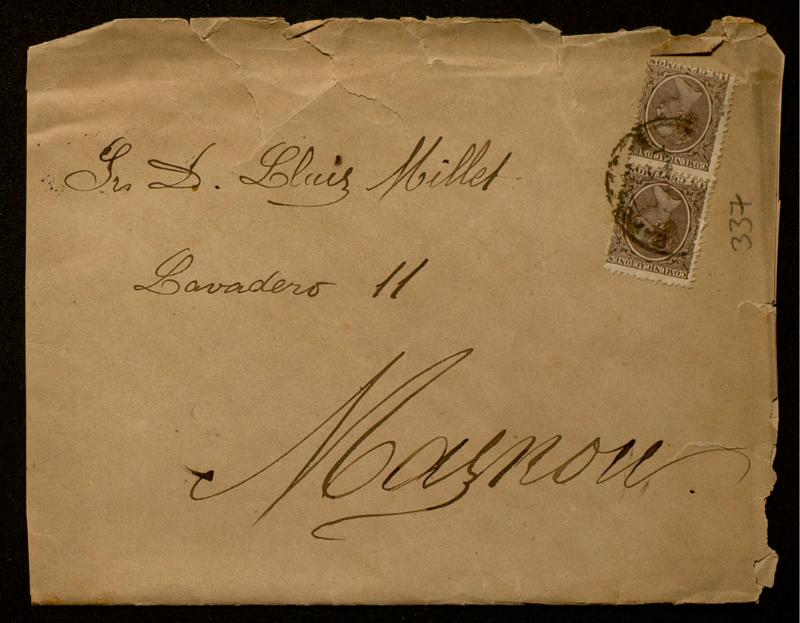 Sr. D. Lluis Millet
Lavadero 11
Masnou.
337
COMUNICACIONES
COMUNICACIONES